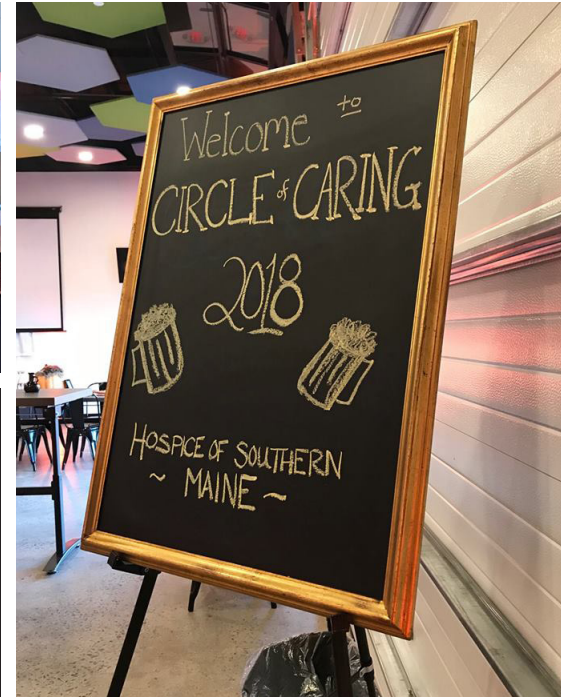 Welcome to
CIRCLE of CARING
2018
HOSPICE OF SOUTHERN
~ MAINE ~